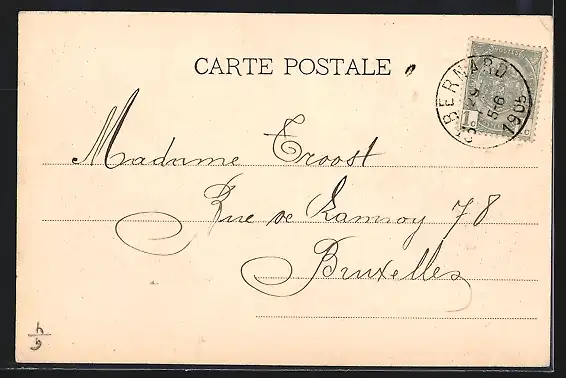 CARTE POSTALE
ST BERNARD
29
5-6
1905
1c
Madame Troost
Rue de Lannoy 78
Bruxelles